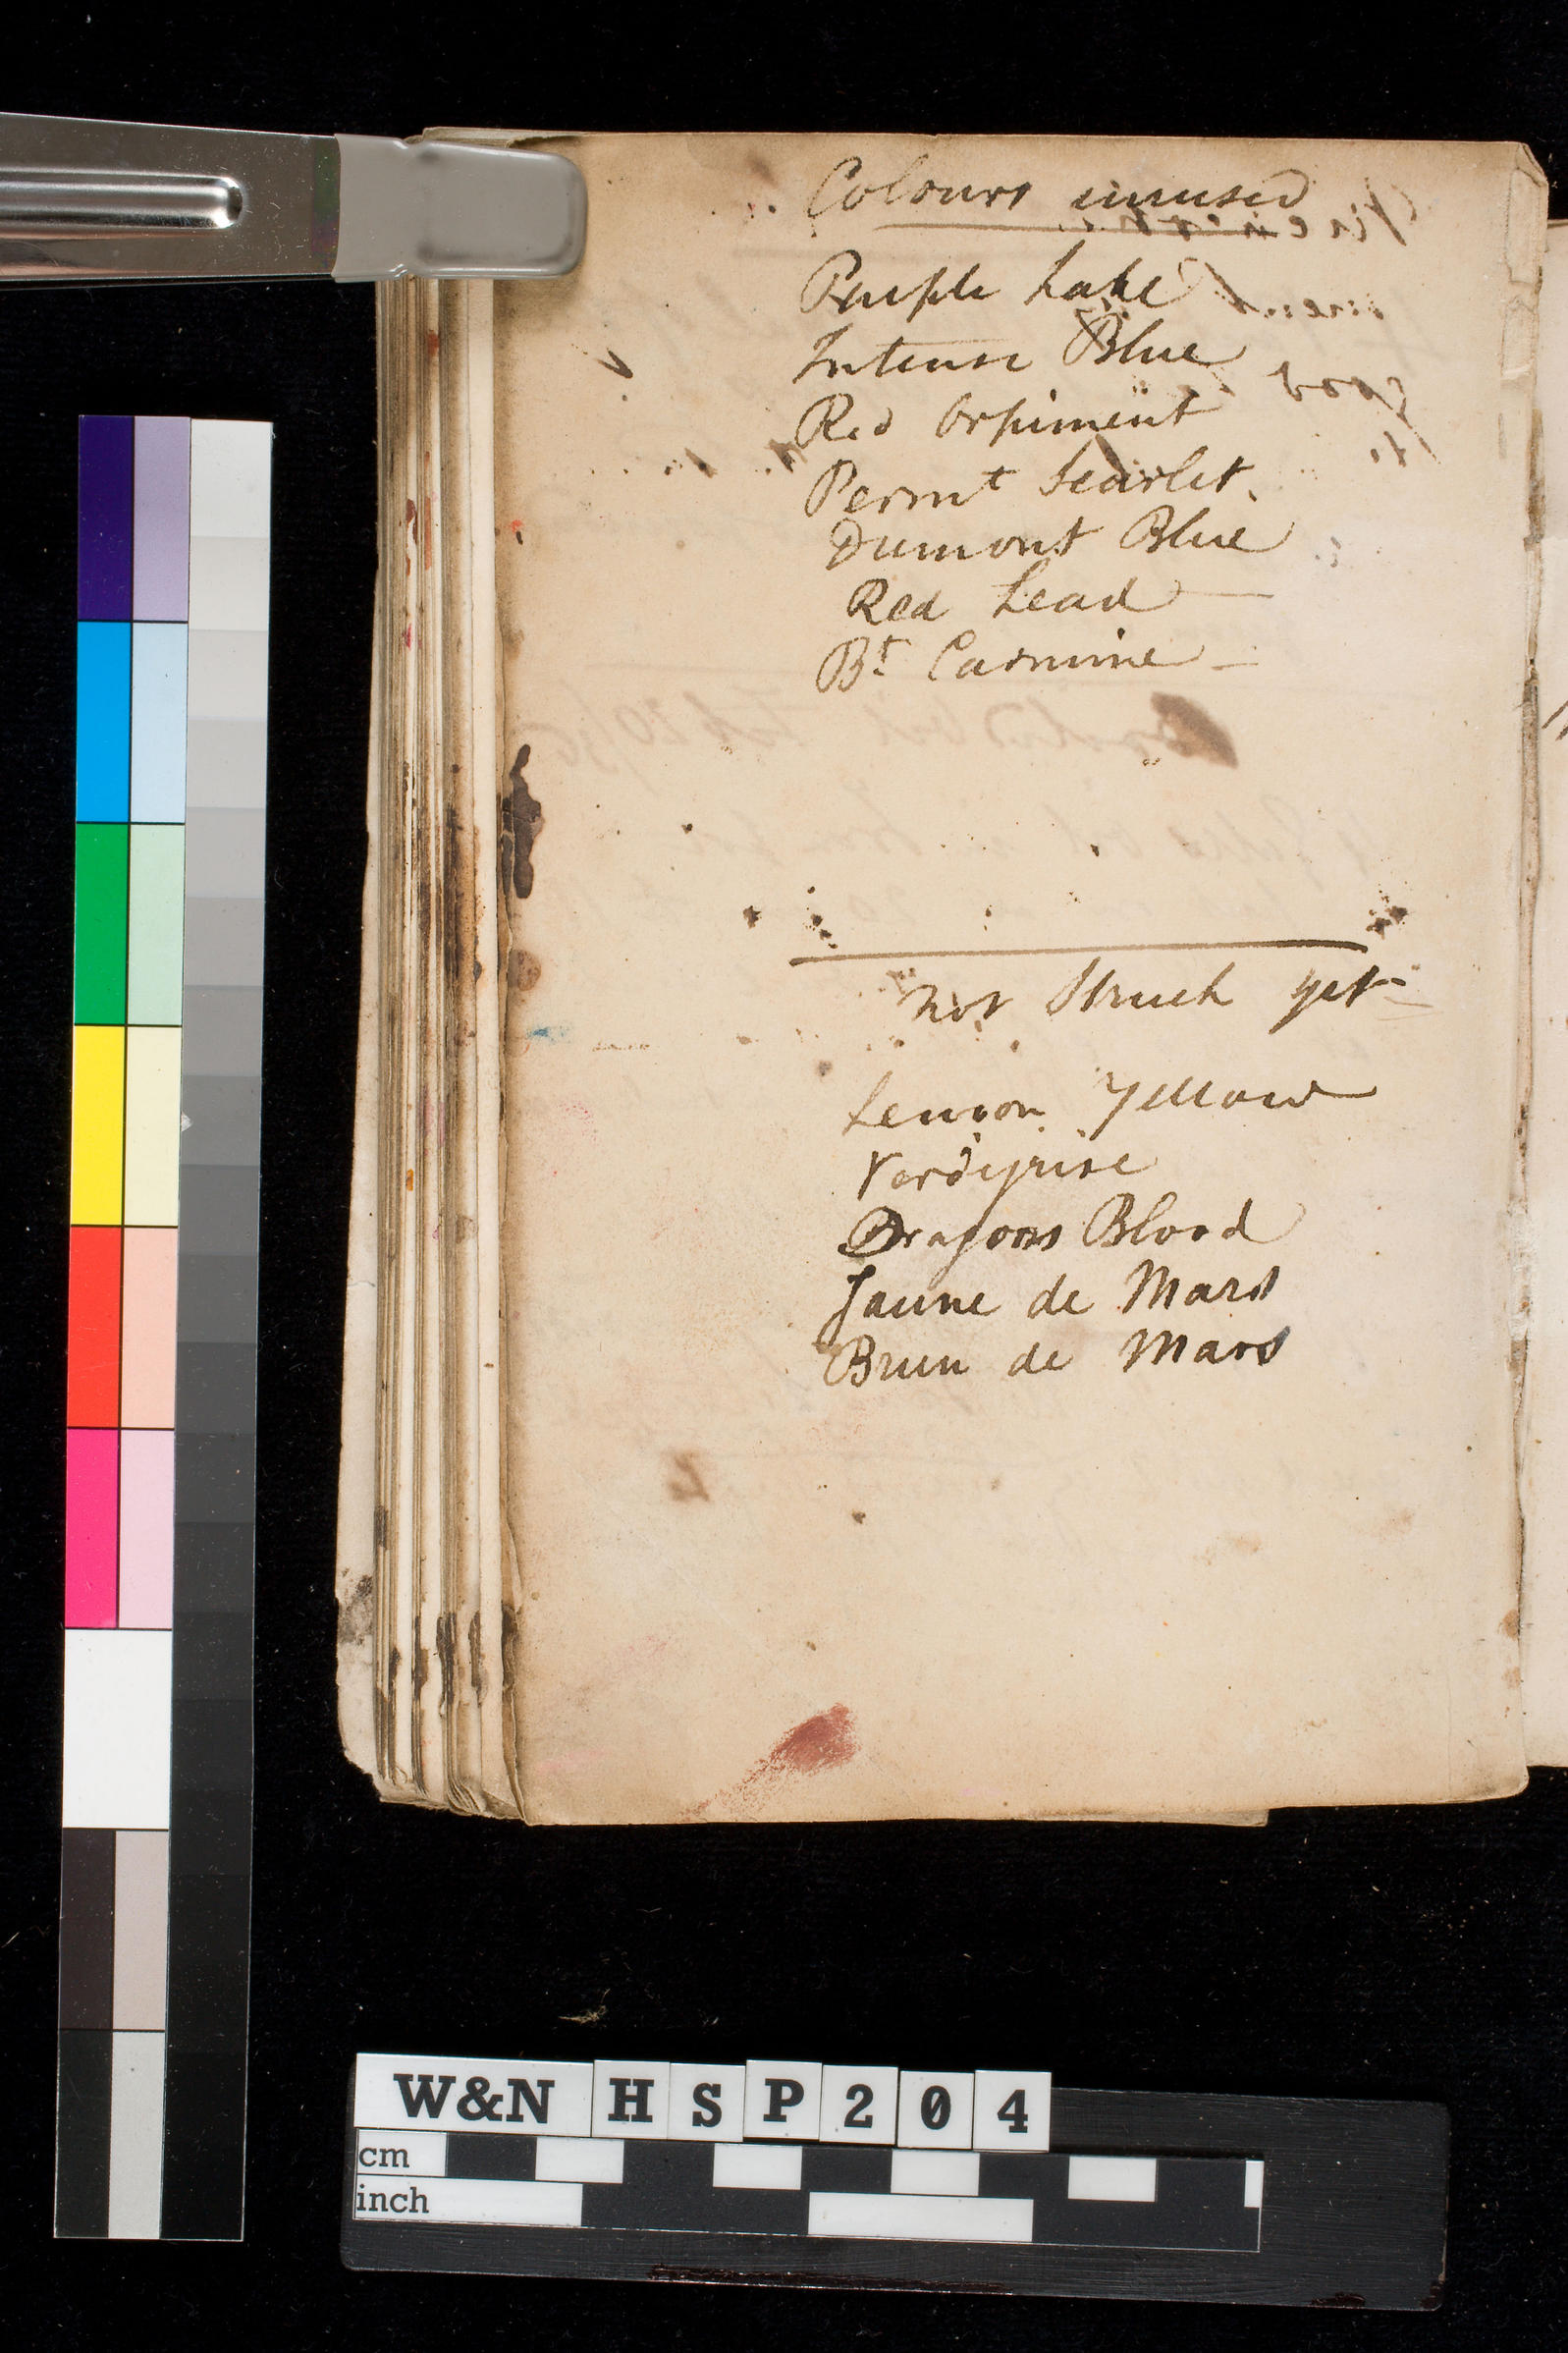 Colours unused
Purple Lake
Intense Blue
Red Orpiment
Permt Scarlet.
Dumont Blue
Red Lead
Bt Carmine
not Struck yet
Lemon Yellow
Verdigrise
Dragons Blood
Jaune de Mars
Brun de Mars
W&N HSP204
cm
inch